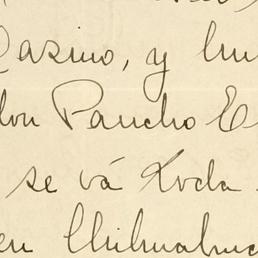 Casino, y
don Pancho E
se vá toda
en Chihuahua